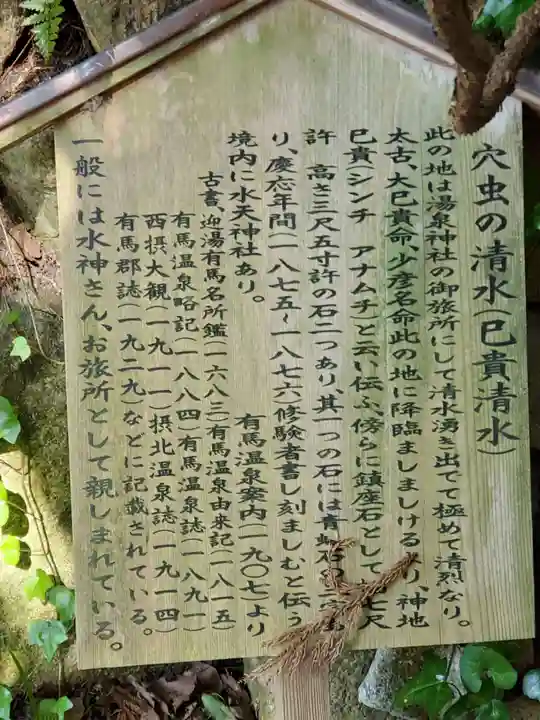 穴虫の清水(巳貴清水)
此の地は湯泉神社の御旅所にして清水湧き出でて極めて清烈なり。
太古、大巳貴命少彦名命此の地に降臨ましましける り、神地
巳貴(シンチ アナムチ)と云い伝ふ、傍らに鎮座石として 七尺
許 高さ三尺五寸許の石二つあり、其一つの石には青 石 二 あ
り、慶応年間(一八七五〜一八七六修験者書し刻ましむと伝う
境内に水天神社あり。
有馬温泉案内(一九〇七より
古書、迎湯有馬名所鑑(一六八三)有馬温泉由来記(一八一五)
有馬温泉略記(一八八四)有馬温泉誌(一八九一
西摂大観(一九一一)摂北温泉誌(一九一四)
有馬郡誌(一九二九)などに記載されている。
一般には水神さん、お旅所として親しまれている。